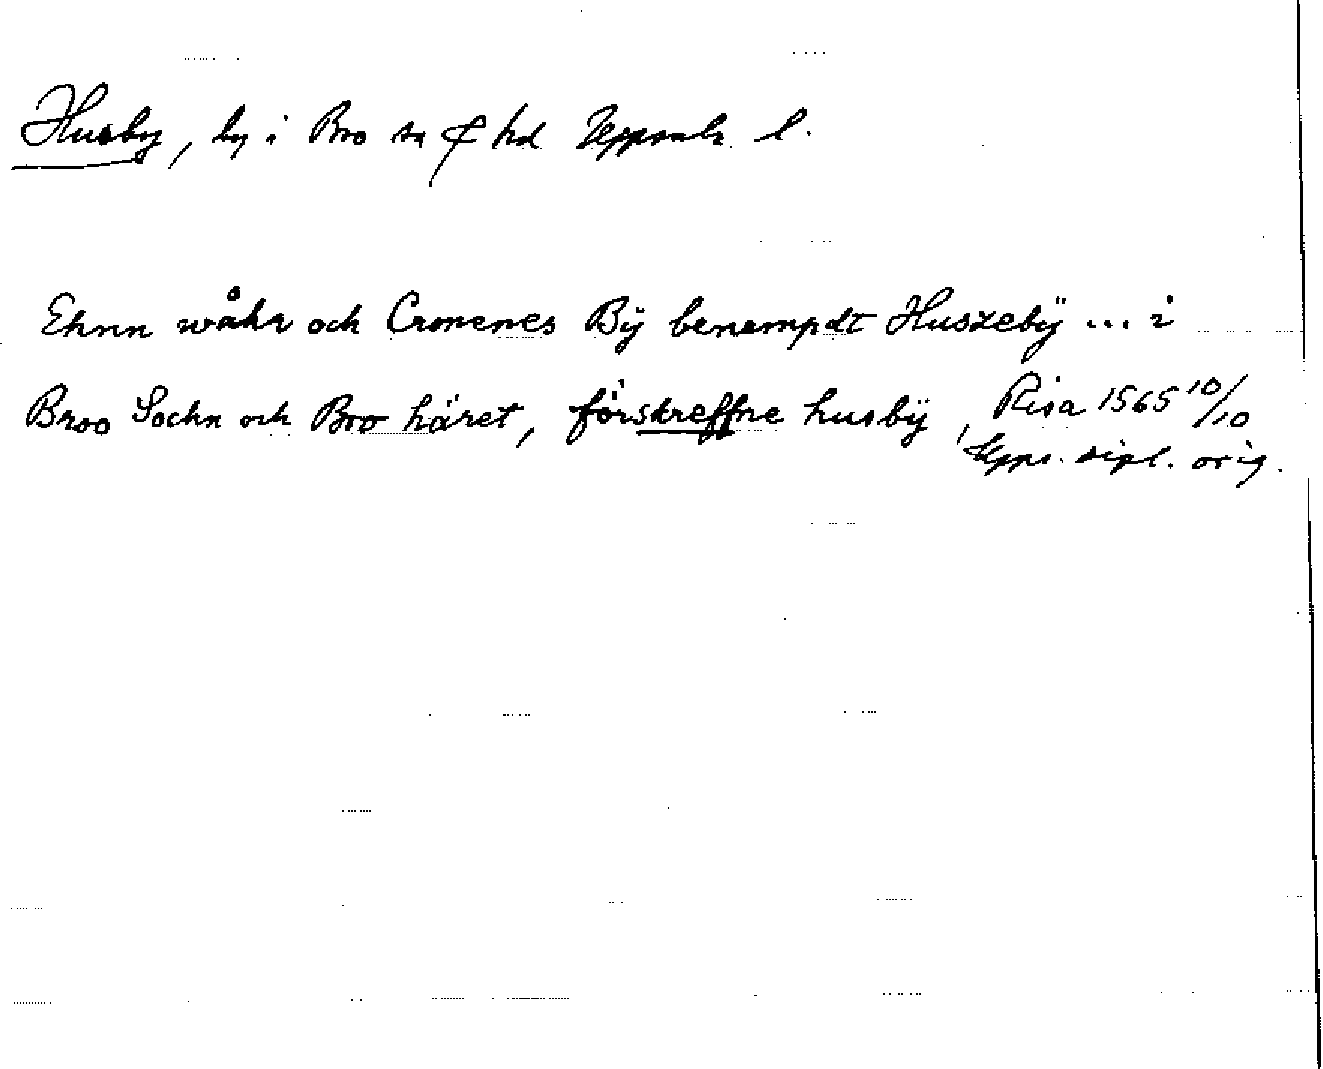 Husby, by i Bro sn & hd Uppsala l.
Ehnn wåhr och Cronenes Bÿ benempdt Huszebÿ ... i
Broo Sochn och Bro häret, förskreffne husbÿ, Risa 1565 10/10
Upps. dipl. orig.